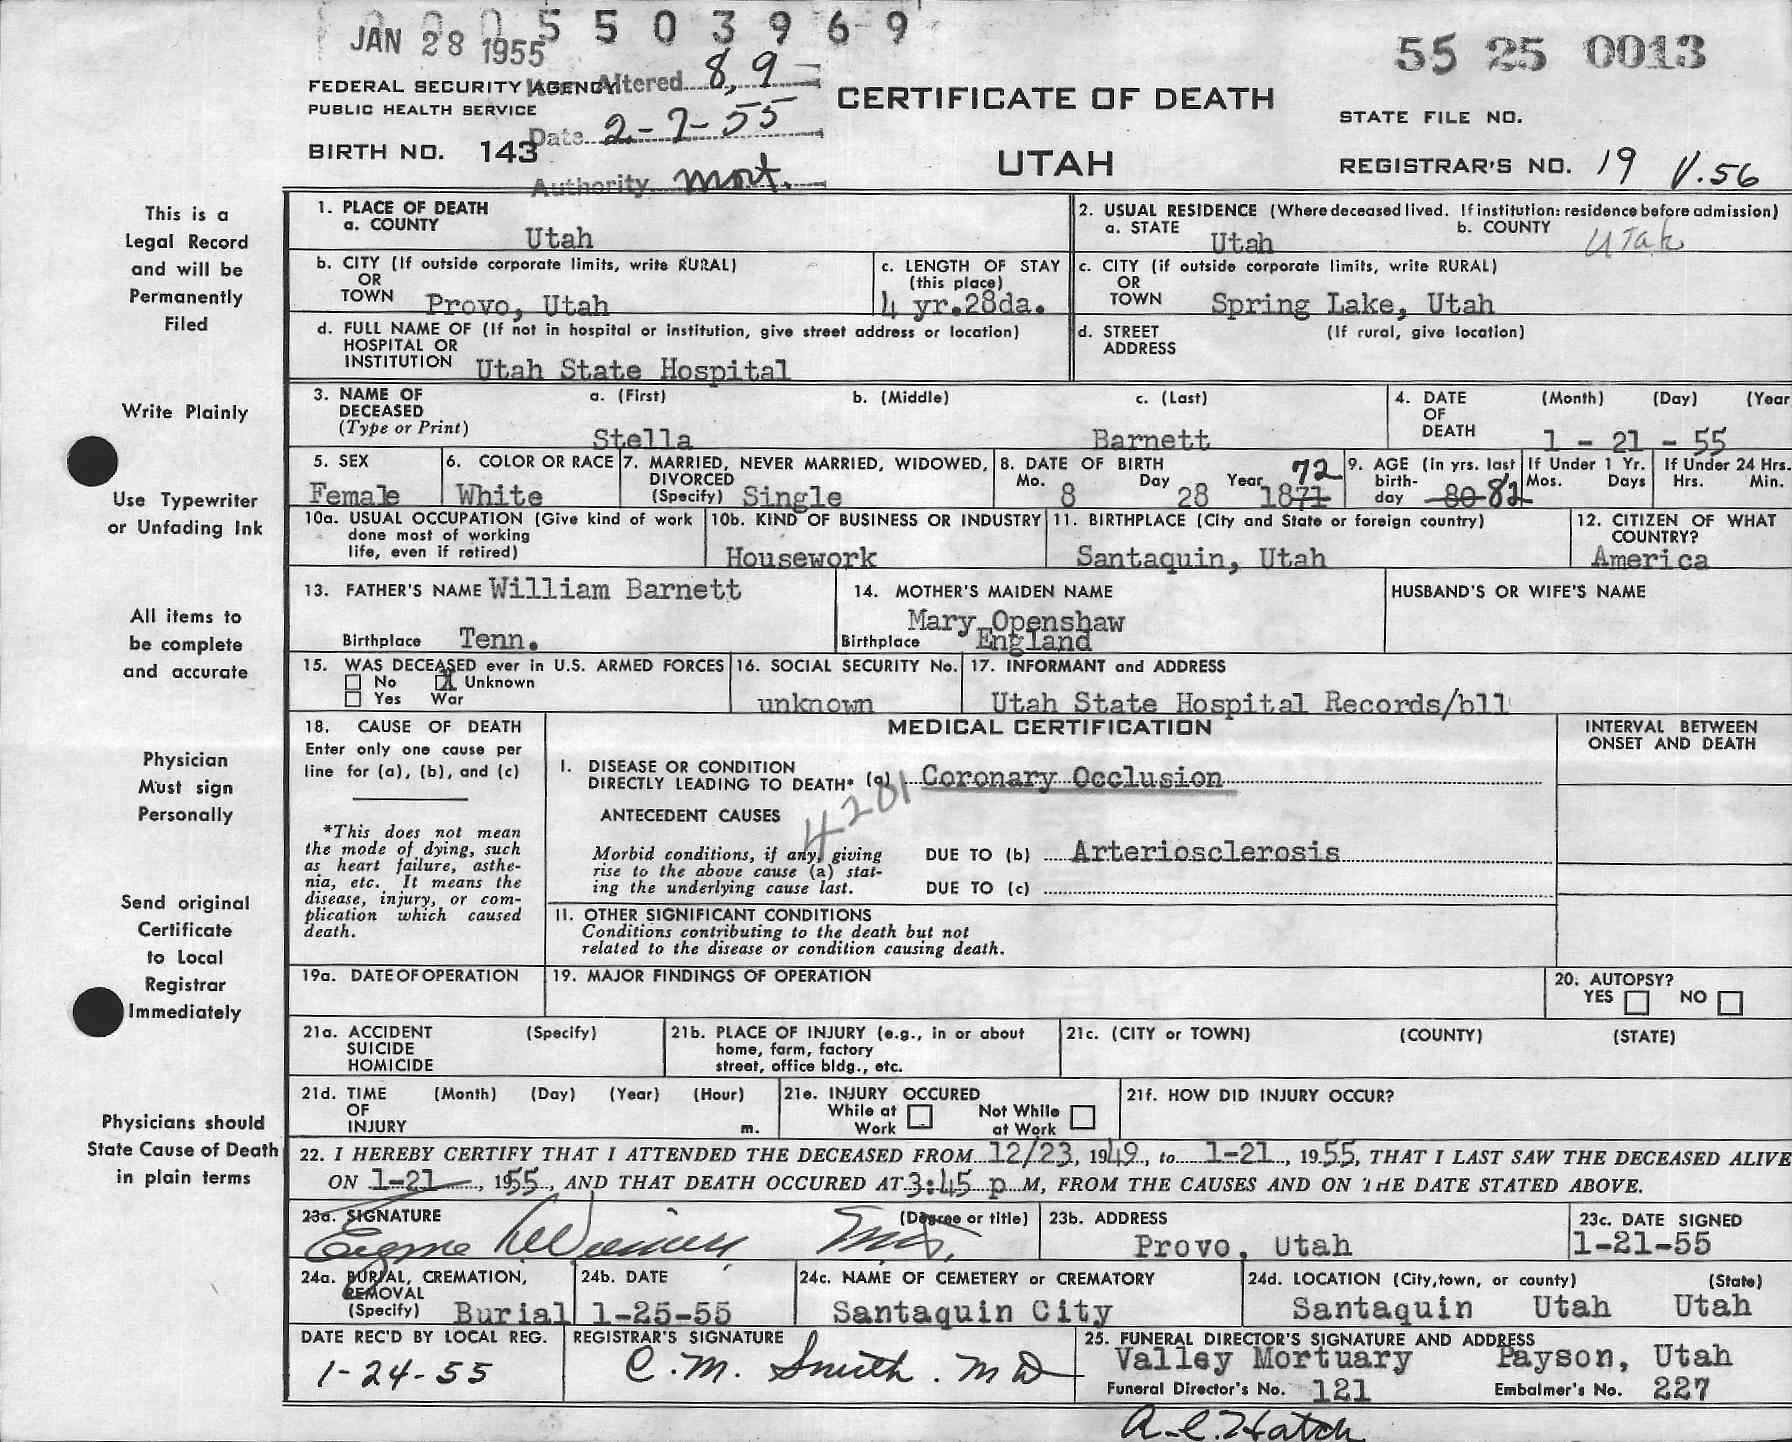 JAN 28 1955
5503969
55 25 0013
FEDERAL SECURITY AGENCY
PUBLIC HEALTH SERVICE
Altered 8, 9
Date 2-7-55
Authority mort.
BIRTH NO. 143
CERTIFICATE OF DEATH
UTAH
STATE FILE NO.
REGISTRAR'S NO. 19 V.56
This is a
Legal Record
and will be
Permanently
Filed
Write Plainly
Use Typewriter
or Unfading Ink
All items to
be complete
and accurate
Physician
Must sign
Personally
Send original
Certificate
to Local
Registrar
Immediately
Physicians should
State Cause of Death
in plain terms
1. PLACE OF DEATH
a. COUNTY
Utah
2. USUAL RESIDENCE (Where deceased lived. If institution: residence before admission)
a. STATE
Utah
b. COUNTY
Utah
b. CITY (If outside corporate limits, write RURAL)
OR
TOWN Provo, Utah
c. LENGTH OF STAY
(this place)
4 yr.28da.
c. CITY (if outside corporate limits, write RURAL)
OR
TOWN Spring Lake, Utah
d. FULL NAME OF (If not in hospital or institution, give street address or location)
HOSPITAL OR
INSTITUTION Utah State Hospital
d. STREET (If rural, give location)
ADDRESS
3. NAME OF
DECEASED
(Type or Print)
a. (First) b. (Middle) c. (Last)
Stella Barnett
4. DATE (Month) (Day) (Year
OF
DEATH 1 - 21 - 55
5. SEX
Female
6. COLOR OR RACE
White
7. MARRIED, NEVER MARRIED, WIDOWED,
DIVORCED
(Specify) Single
8. DATE OF BIRTH
Mo. Day Year 72
8 28 1871
9. AGE (In yrs. last
birth-
day 80 82
If Under 1 Yr.
Mos. Days
If Under 24 Hrs.
Hrs. Min.
10a. USUAL OCCUPATION (Give kind of work
done most of working
life, even if retired)
10b. KIND OF BUSINESS OR INDUSTRY
Housework
11. BIRTHPLACE (City and State or foreign country)
Santaquin, Utah
12. CITIZEN OF WHAT
COUNTRY?
America
13. FATHER'S NAME William Barnett
Birthplace Tenn.
14. MOTHER'S MAIDEN NAME
Mary Openshaw
Birthplace England
HUSBAND'S OR WIFE'S NAME
15. WAS DECEASED ever in U.S. ARMED FORCES
No X Unknown
Yes War
16. SOCIAL SECURITY No.
unknown
17. INFORMANT and ADDRESS
Utah State Hospital Records/bll
18. CAUSE OF DEATH
Enter only one cause per
line for (a), (b), and (c)
*This does not mean
the mode of dying, such
as heart failure, asthe-
nia, etc. It means the
disease, injury, or com-
plication which caused
death.
MEDICAL CERTIFICATION
INTERVAL BETWEEN
ONSET AND DEATH
I. DISEASE OR CONDITION
DIRECTLY LEADING TO DEATH* (a) Coronary Occlusion
4201
ANTECEDENT CAUSES
Morbid conditions, if any, giving
rise to the above cause (a) stat-
ing the underlying cause last.
DUE TO (b) Arteriosclerosis
DUE TO (c)
II. OTHER SIGNIFICANT CONDITIONS
Conditions contributing to the death but not
related to the disease or condition causing death.
19a. DATE OF OPERATION
19. MAJOR FINDINGS OF OPERATION
20. AUTOPSY?
YES NO
21a. ACCIDENT (Specify)
SUICIDE
HOMICIDE
21b. PLACE OF INJURY (e.g., in or about
home, farm, factory
street, office bldg., etc.
21c. (CITY or TOWN) (COUNTY) (STATE)
21d. TIME (Month) (Day) (Year) (Hour)
OF
INJURY m.
21e. INJURY OCCURED
While at Not While
Work at Work
21f. HOW DID INJURY OCCUR?
22. I HEREBY CERTIFY THAT I ATTENDED THE DECEASED FROM 12/23, 1949, to 1-21, 1955, THAT I LAST SAW THE DECEASED ALIVE
ON 1-21, 1955, AND THAT DEATH OCCURED AT 3:45 p M, FROM THE CAUSES AND ON THE DATE STATED ABOVE.
23a. SIGNATURE (Degree or title)
Eugene
23b. ADDRESS
Provo, Utah
23c. DATE SIGNED
1-21-55
24a. BURIAL, CREMATION,
REMOVAL
(Specify) Burial
24b. DATE
1-25-55
24c. NAME OF CEMETERY or CREMATORY
Santaquin City
24d. LOCATION (City, town, or county) (State)
Santaquin Utah Utah
DATE REC'D BY LOCAL REG.
1-24-55
REGISTRAR'S SIGNATURE
C. M. Smith. M D
25. FUNERAL DIRECTOR'S SIGNATURE AND ADDRESS
Valley Mortuary Payson, Utah
Funeral Director's No. 121 Embalmer's No. 227
A. L. Hatch